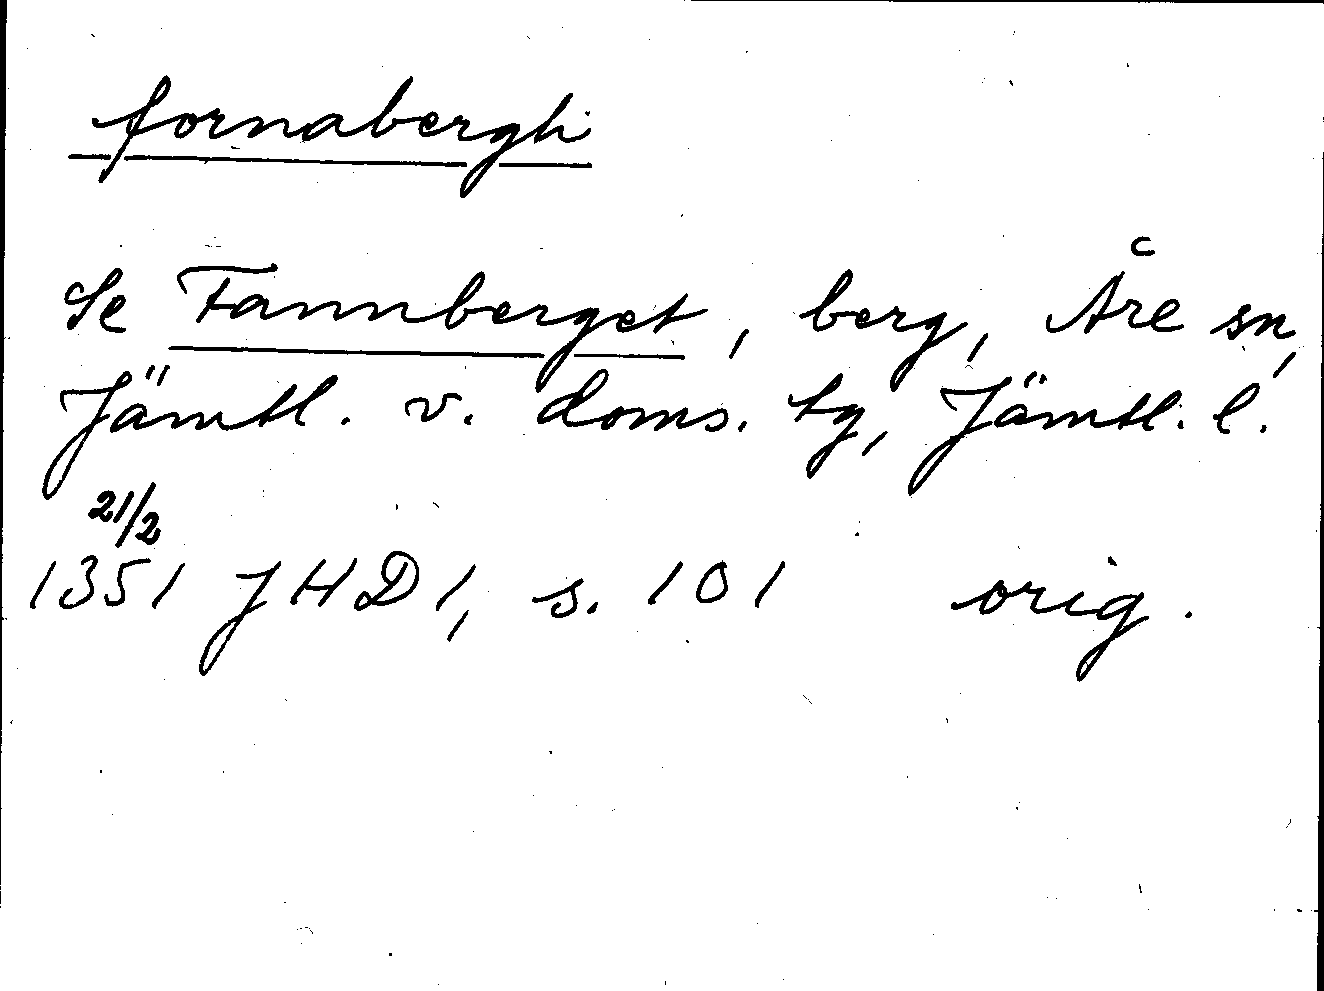 fornabergh
Se Fannberget, berg, Åre sn,
Jämtl. v. doms. tg, Jämtl. l.
21/2
1351 JHD 1, s. 101 orig.